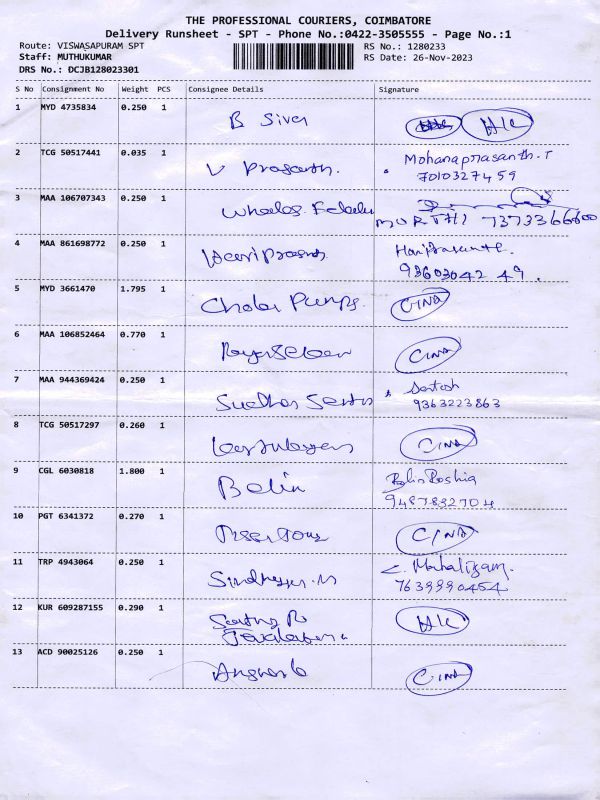 THE PROFESSIONAL COURIERS, COIMBATORE
Delivery Runsheet - SPT - Phone No.:0422-3505555 - Page No.:1
Route: VISWASAPURAM SPT RS No.: 1280233
Staff: MUTHUKUMAR RS Date: 26-Nov-2023
DRS No.: DCJB128023301
S No Consignment No Weight PCS Consignee Details Signature
1 MYD 4735834 0.250 1 B Siva H/C
2 TCG 50517441 0.035 1 V Prasanth. Mohanaprasanth.T
7010327459
3 MAA 106707343 0.250 1 Wheels MURTHI 7373366600
4 MAA 861698772 0.250 1 Hariprasanth Hariprasanth
93603042 49.
5 MYD 3661470 1.795 1 Chola Pumps. C/NA
6 MAA 106852464 0.770 1 C/NA
7 MAA 944369424 0.250 1 Sudhar Santosh
9363223863
8 TCG 50517297 0.260 1 C/NA
9 CGL 6030818 1.800 1 Belin Roshia
9487832704
10 PGT 6341372 0.270 1 C/NA
11 TRP 4943064 0.250 1 C. Mahaligam.
7639990454
12 KUR 609287155 0.290 1 H/C
13 ACD 90025126 0.250 1 C/NA